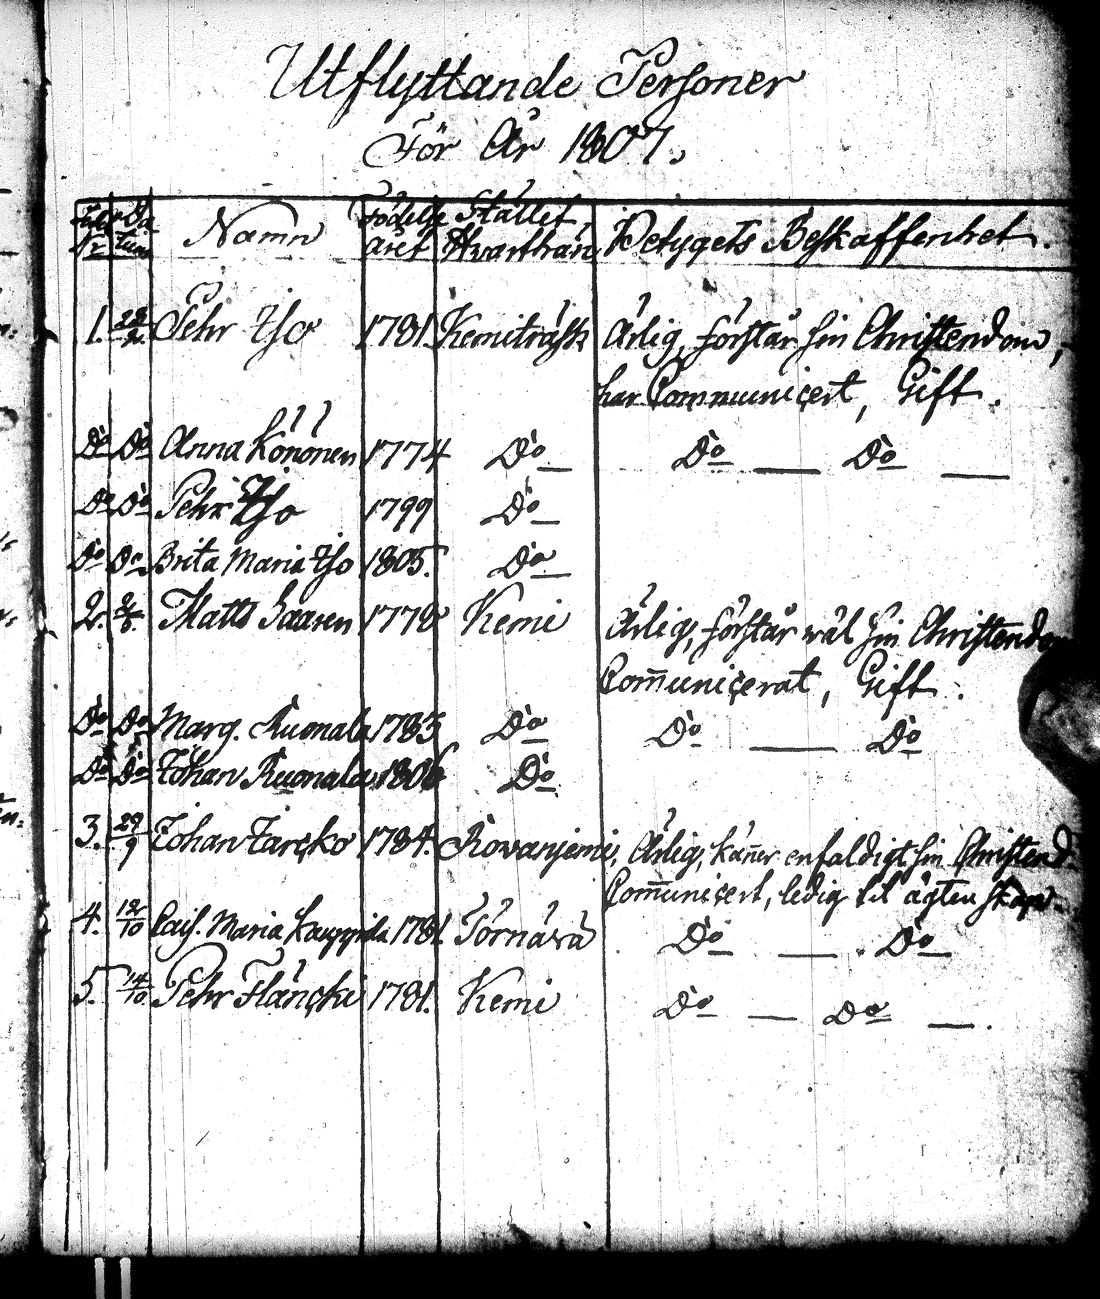 Utflyttande Personer
För År 1807.
Namn Födelse året Stället Hvarthän Betygets Beskaffenhet.
1. Pehr Iso 1781. Kemiträsk Ärlig, förstår sin Christendom,
har Communicert, Gift.
Do Do Anna Könönen 1774 Do Do Do
Do Do Pehr Iso 1799 Do
Do Do Brita Maria Iso 1805. Do
2. Matts Saaren 1778 Kemi Ärlig, förstår wäl sin Christendom
Com̄unicerat, Gift.
Do Do Marg. Ruonala 1783 Do Do Do
Do Do Johan Ruonala 1806 Do
3. 29/9 Johan 1784. Rovanjemi, Ärlig, kan̄er enfaldigt sin Christend.
Com̄unicert, ledig til ägtenskap.
4. 12/10 Cais. Maria Kauppila 1781. Törnävä Do Do
5. 14/10 Pehr Fläncki 1781. Kemi Do Do